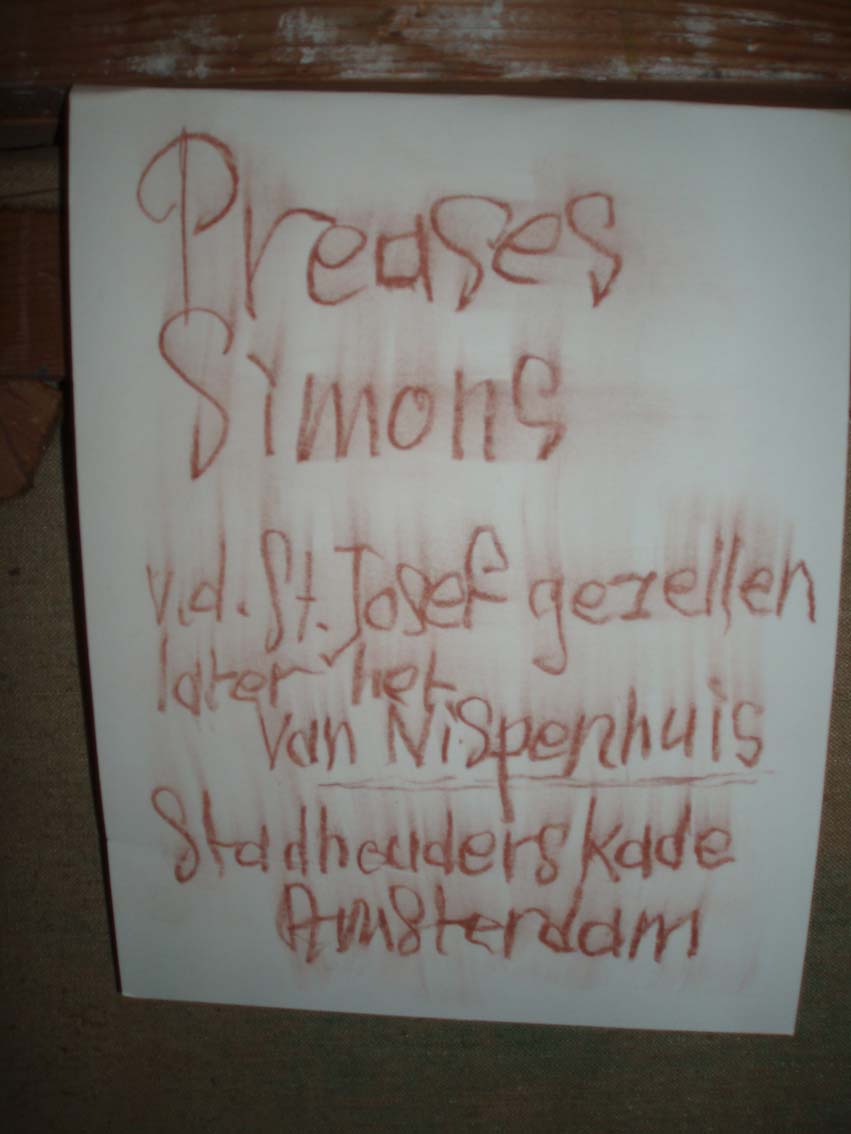 Preases
Simons
v.d. St. Josef gezellen
later het
van Nispenhuis
Stadhouderskade
Amsterdam